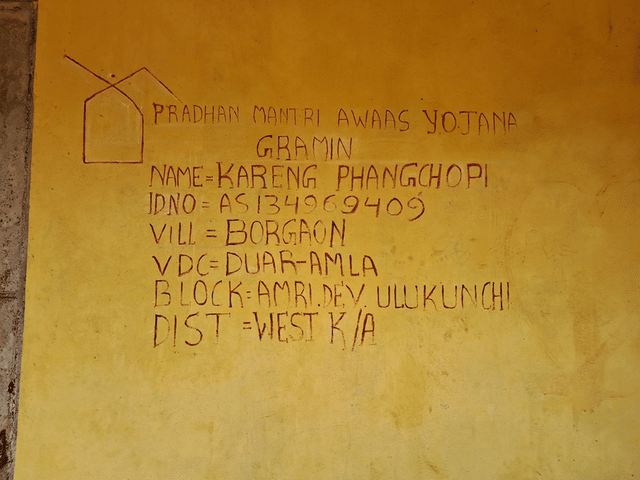 PRADHAN MANTRI AWAAS YOJANA
GRAMIN
NAME=KARENG PHANGCHOPI
IDNO=AS134969409
VILL=BORGAON
VDC=DUAR-AMLA
BLOCK=AMRI.DEV. ULUKUNCHI
DIST=WEST K/A